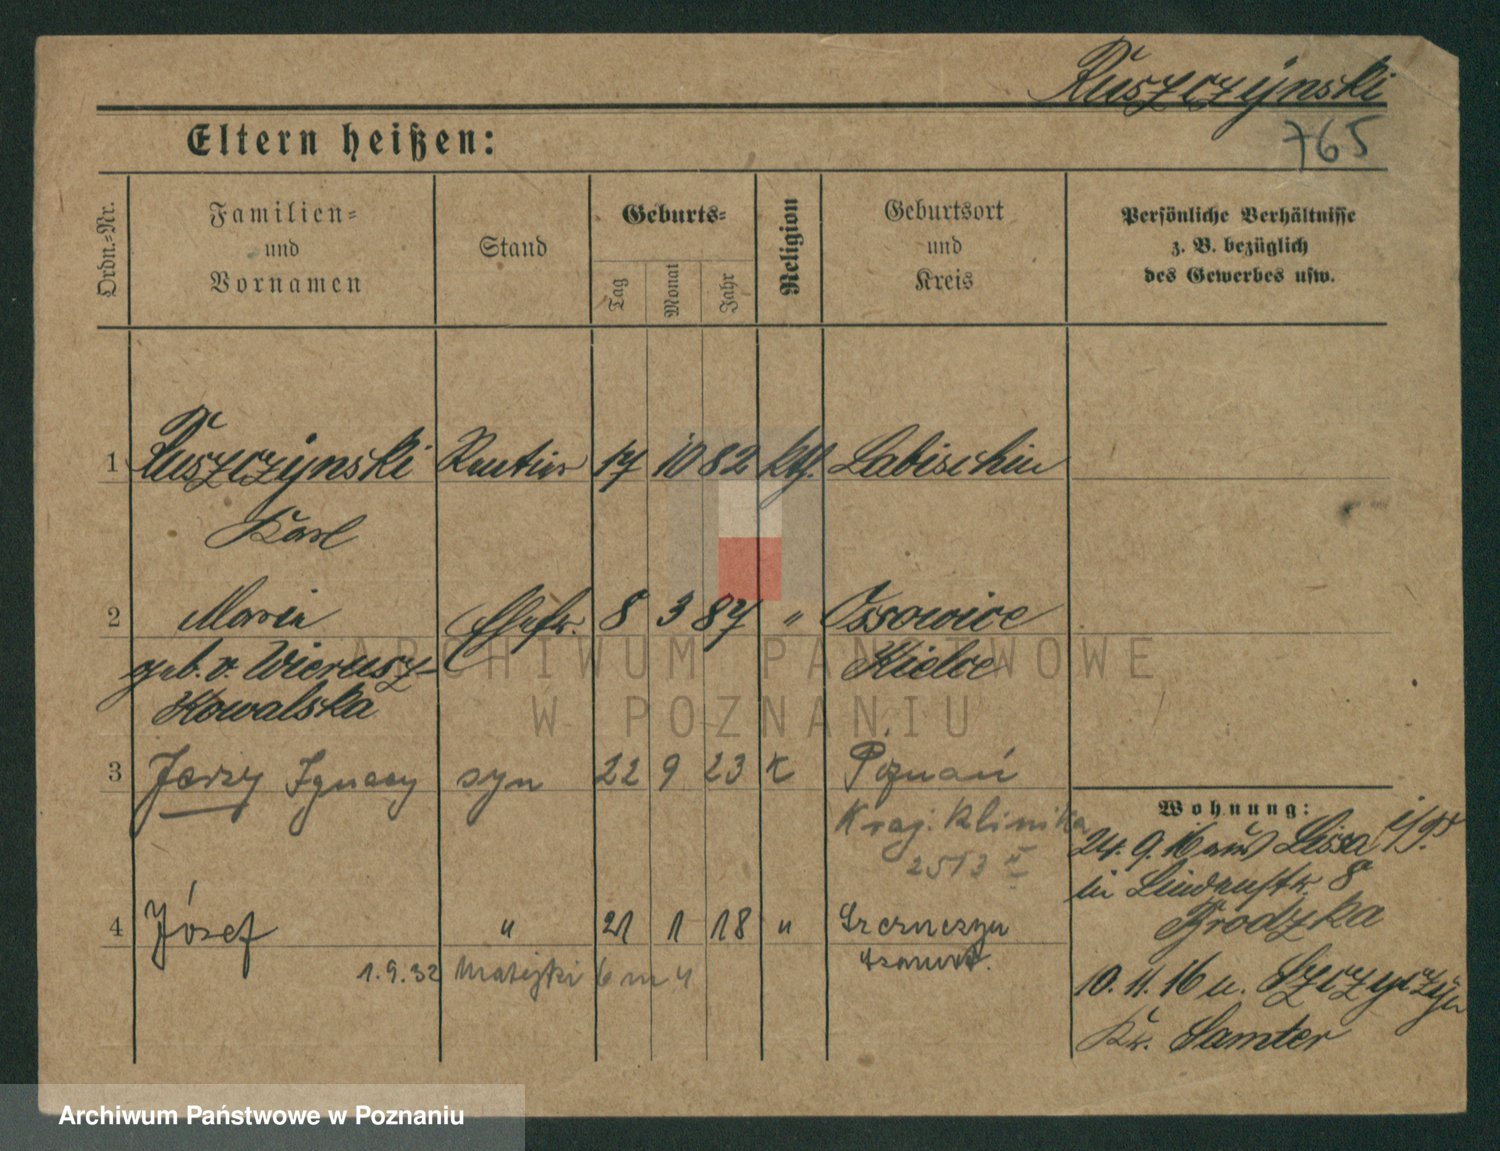 Ruszczyński
765
Eltern heißen:
Ordn.=Nr.
Familien=
und
Vornamen
Stand
Geburts=
Tag
Monat
Jahr
Religion
Geburtsort
und
Kreis
Persönliche Verhältnisse
z. B. bezüglich
des Gewerbes usw.
1 Ruszczyński Rentier 17 10 82 kth. Labischin
Karl
2 Maria Ehefr. 8 3 87 " Ossowice
geb. v. Wierusz- Kielce
Kowalska
3 Jerzy Ignacy syn 22 9 23 k Poznań
Kraj. Klinika
2513 II
Wohnung:
24. 9. 16 aus Lissa i/P.
in Lindenstr. 8
Brodzka
4 Józef " 21 1 18 "
1.9.32 Matejki 6 m 4
10. 11. 16 n.
Kr. Samter
ARCHIWUM PAŃSTWOWE
W POZNANIU
Archiwum Państwowe w Poznaniu